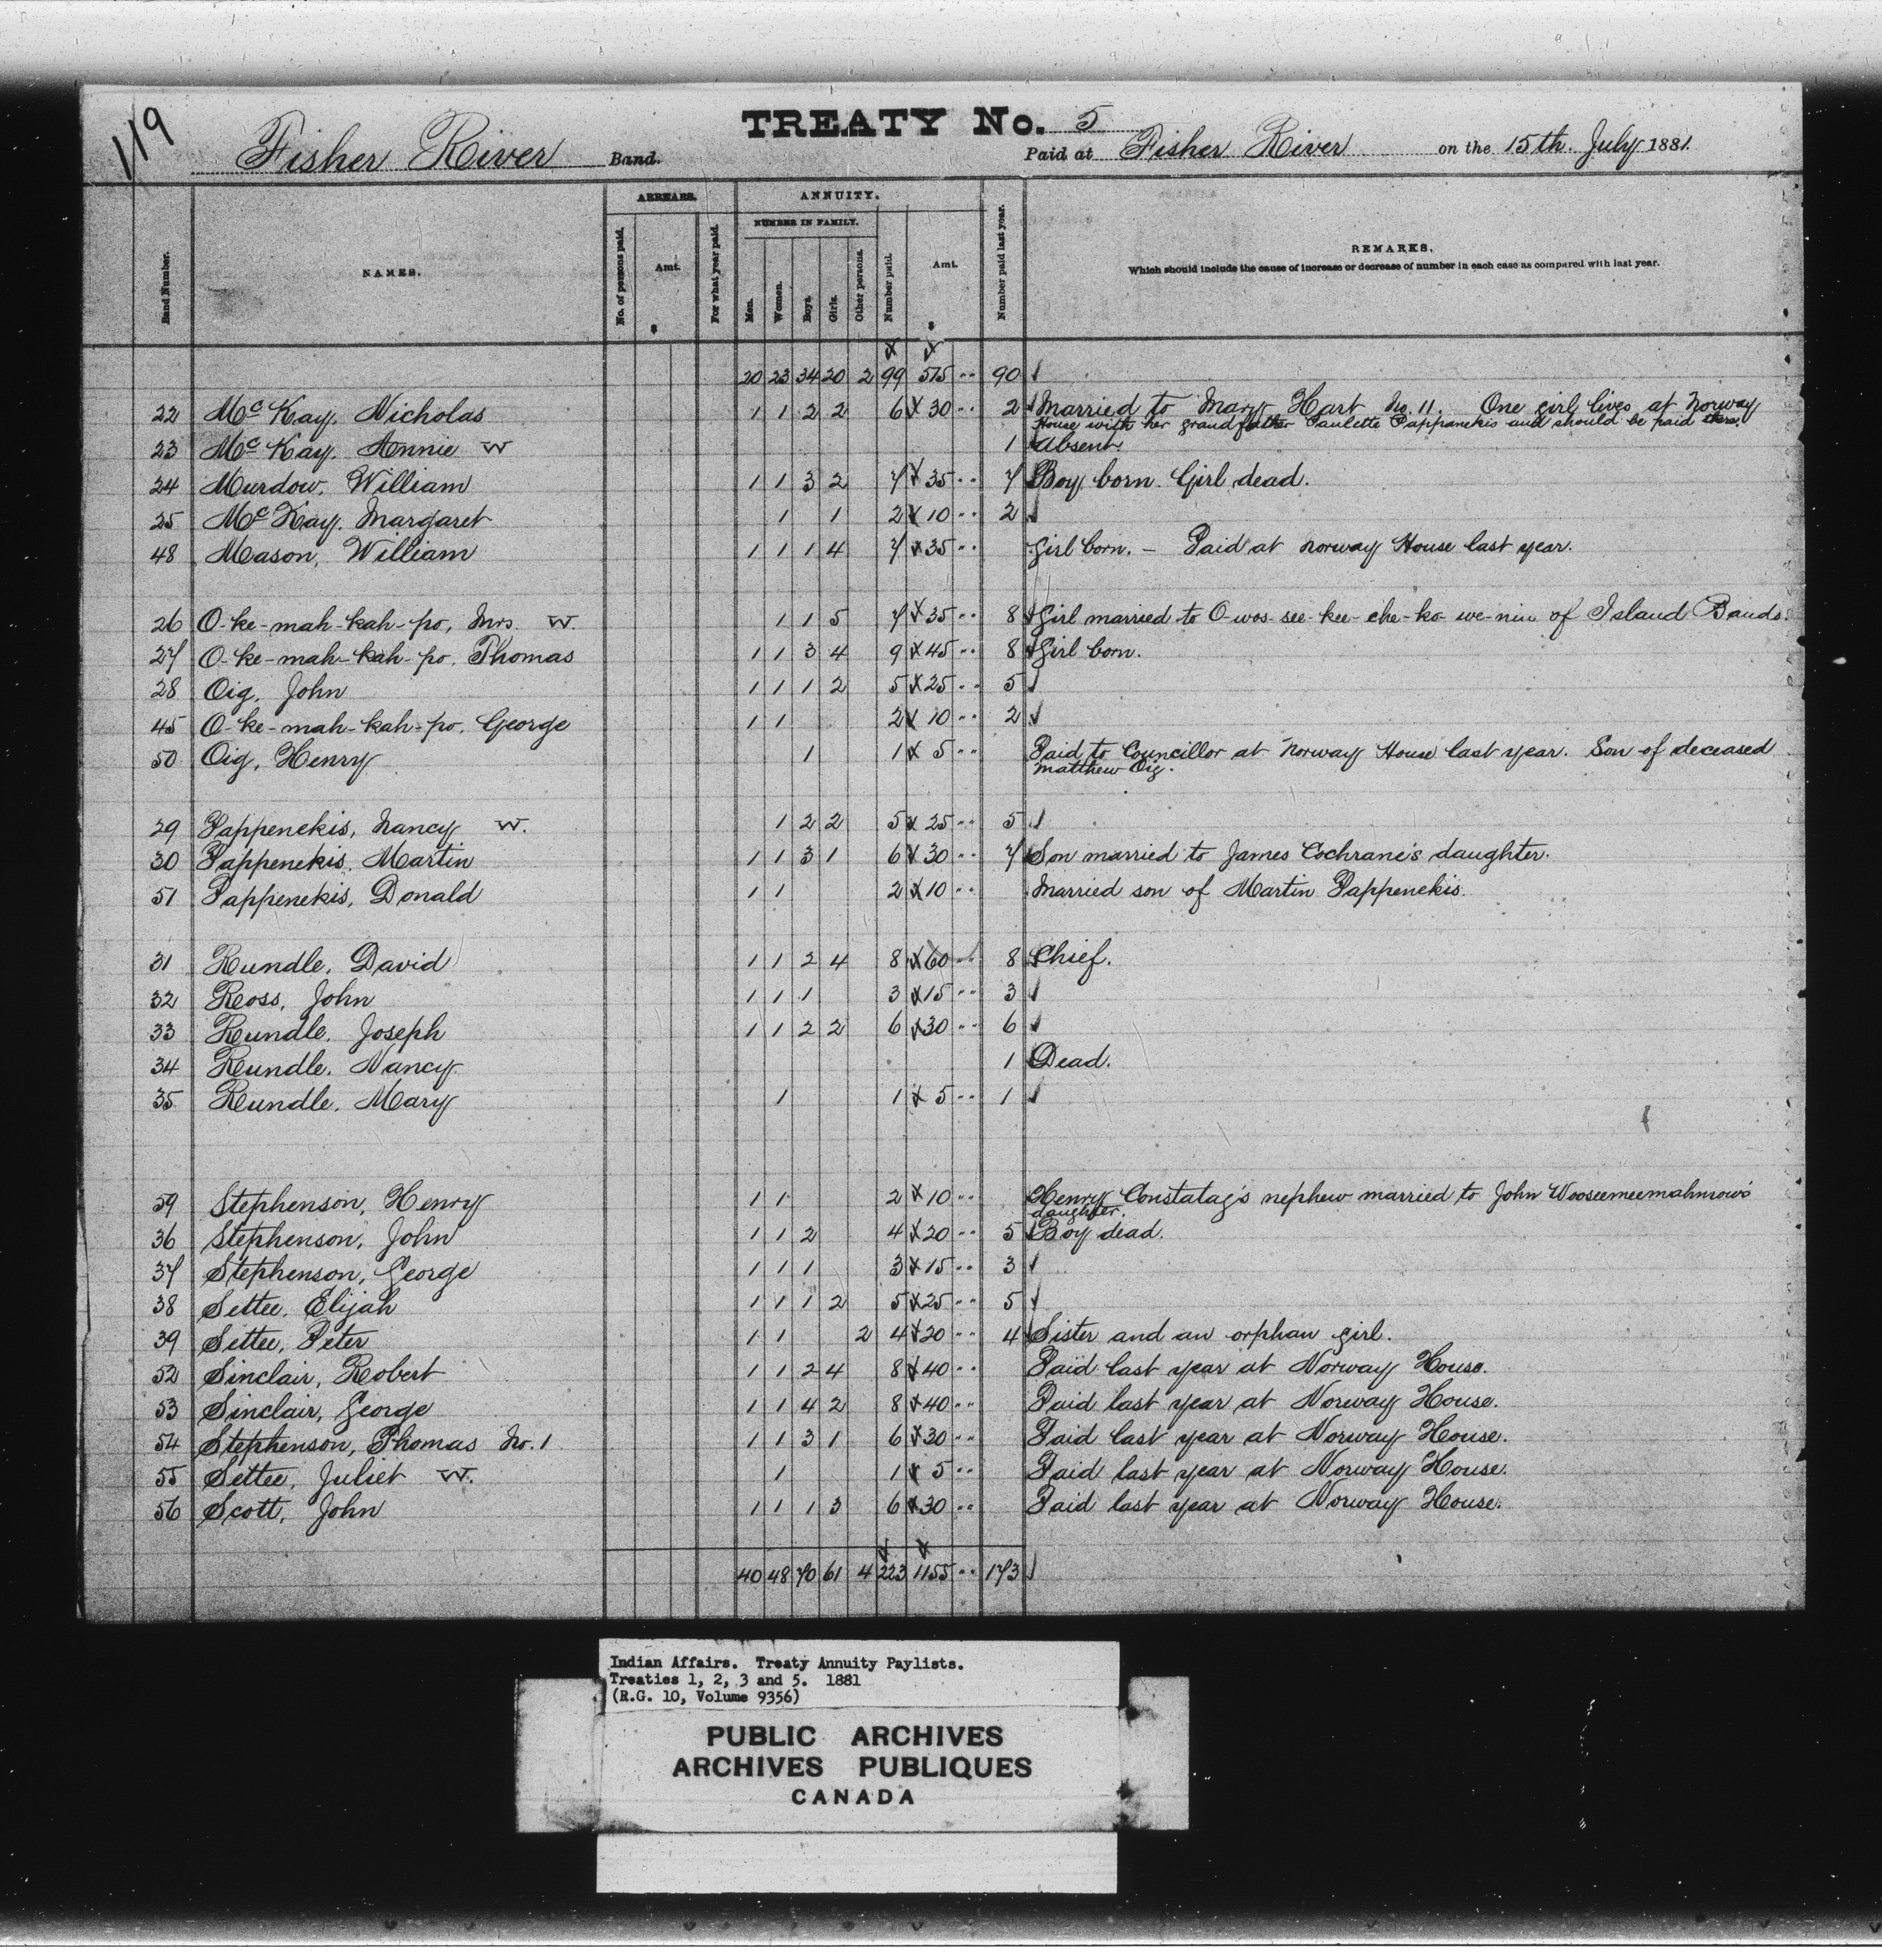 119
TREATY No. 5
Fisher River Band.
Paid at Fisher River on the 15th July 1881.
Band Number.
NAMES.
ARREARS.
No. of persons paid.
Amt.
$
For what year paid.
ANNUITY.
NUMBER IN FAMILY.
Men.
Women.
Boys.
Girls.
Other persons.
Number paid.
Amt.
$
Number paid last year.
REMARKS.
Which should include the cause of increase or decrease of number in each case as compared with last year.
20 23 34 20 2 99 515 .. 90
22 McKay, Nicholas 1 1 2 2 6 30 .. 2 Married to Mary Hart No. 11. One girl lives at Norway
House with her grandfather Paulette Pappanekis and should be paid there.
23 McKay, Annie W 1 Absent.
24 Murdow, William 1 1 3 2 7 35 .. 7 Boy born. Girl dead.
25 McKay, Margaret 1 1 2 10 .. 2
48 Mason, William 1 1 1 4 7 35 .. Girl born. – Paid at Norway House last year.
26 O-ke-mah-kah-po, Mrs. W 1 1 5 7 35 .. 8 Girl married to O-wos-see-kee-che-ko-we-nin of Island Bands.
27 O-ke-mah-kah-po, Thomas 1 1 3 4 9 45 .. 8 Girl born.
28 Oig, John 1 1 1 2 5 25 .. 5
45 O-ke-mah-kah-po, George 1 1 2 10 .. 2
50 Oig, Henry 1 1 5 .. Paid to Councillor at Norway House last year. Son of deceased
Matthew Oig.
29 Pappenekis, Nancy W. 1 2 2 5 25 .. 5
30 Pappenekis, Martin 1 1 3 1 6 30 .. 7 Son married to James Cochrane's daughter.
51 Pappenekis, Donald 1 1 2 10 .. Married son of Martin Pappenekis.
31 Rundle, David 1 1 2 4 8 60 .. 8 Chief.
32 Ross, John 1 1 1 3 15 .. 3
33 Rundle, Joseph 1 1 2 2 6 30 .. 6
34 Rundle, Nancy 1 Dead.
35 Rundle, Mary 1 1 5 .. 1
59 Stephenson, Henry 1 1 2 10 .. Henry Constatag's nephew married to John Wooseemeemahmow's
daughter.
36 Stephenson, John 1 1 2 4 20 .. 5 Boy dead.
37 Stephenson, George 1 1 1 3 15 .. 3
38 Settee, Elijah 1 1 1 2 5 25 .. 5
39 Settee, Peter 1 1 2 4 20 .. 4 Sister and an orphan girl.
52 Sinclair, Robert 1 1 2 4 8 40 .. Paid last year at Norway House.
53 Sinclair, George 1 1 4 2 8 40 .. Paid last year at Norway House.
54 Stephenson, Thomas No. 1 1 1 3 1 6 30 .. Paid last year at Norway House.
55 Settee, Juliet W. 1 1 5 .. Paid last year at Norway House.
56 Scott, John 1 1 1 3 6 30 .. Paid last year at Norway House.
40 48 70 61 4 223 1155 .. 173
Indian Affairs. Treaty Annuity Paylists.
Treaties 1, 2, 3 and 5. 1881
(R.G. 10, Volume 9356)
PUBLIC ARCHIVES
ARCHIVES PUBLIQUES
CANADA